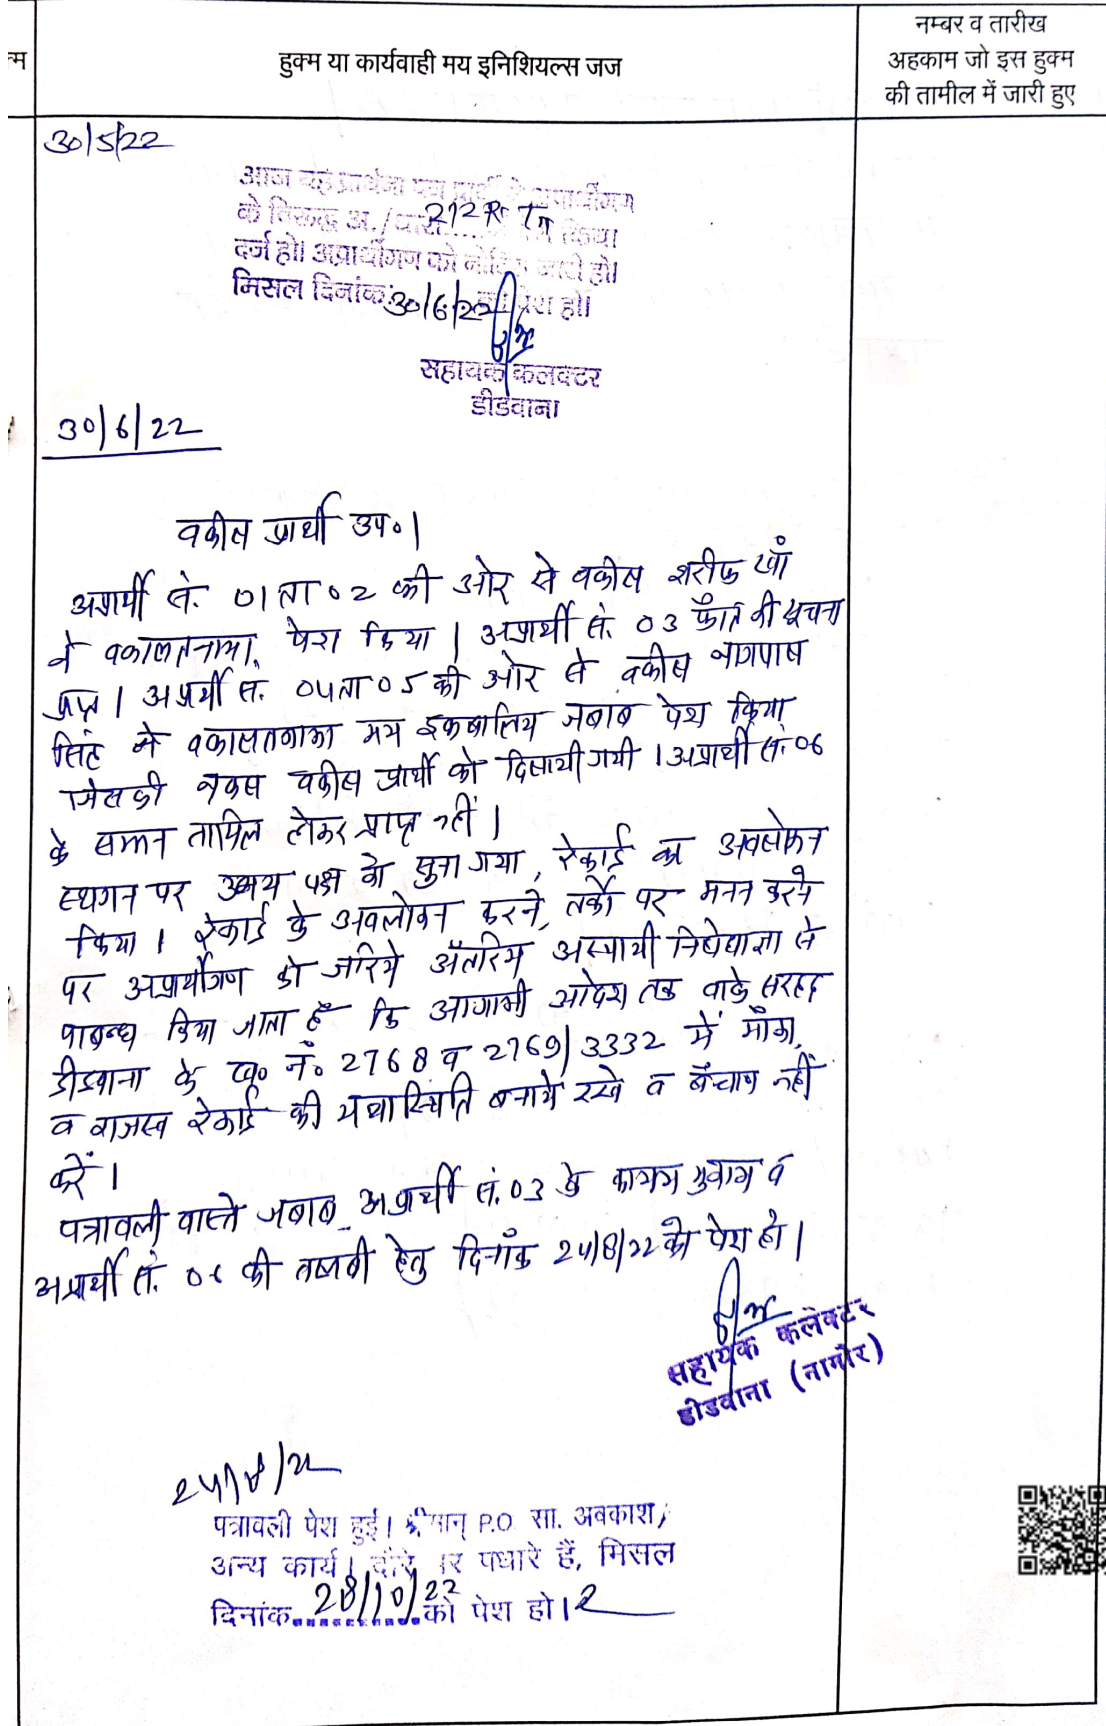 हुक्म या कार्यवाही मय इनिशियल्स जज
नम्बर व तारीख
अहकाम जो इस हुक्म
की तामील में जारी हुए
30/5/22
आज यह प्रार्थना पत्र प्रार्थी ने अप्रार्थीगण
के विरुद्ध अ./धारा 212 R. T. किया
दर्ज हो। अप्रार्थीगण को नोटिस जारी हो।
मिसल दिनांक 30/6/22 को पेश हो।
सहायक कलक्टर
डीडवाना
30/6/22
वकील प्रार्थी उप०।
अप्रार्थी सं. 01 ता 02 की ओर से वकील शरीफ खाँ
ने वकालतनामा पेश किया। अप्रार्थी सं. 03 फौत की सूचना
प्राप्त। अप्रार्थी सं. 04 ता 05 की ओर से वकील नागपाल
सिंह ने वकालतनामा मय इकबालिय जबाब पेश किया
जिसकी नकल वकील प्रार्थी को दिलायी गयी। अप्रार्थी सं. 06
के सम्मन तामिल होकर प्राप्त नहीं।
स्थगन पर उभय पक्ष को सुना गया, रेकार्ड का अवलोकन
किया। रेकार्ड के अवलोकन करने, तर्कों पर मनन करने
पर अप्रार्थीगण को जरिये अंतरिम अस्थायी निषेधाज्ञा से
पाबन्ध किया जाता हैं कि आगामी आदेश तक वाके सरहद
डीडवाना के ख० नं० 2768 व 2769/3332 में मौका
व राजस्व रेकार्ड की यथास्थिति बनाये रखे व बेंचाण नहीं
करें।
पत्रावली वास्ते जबाब अप्रार्थी सं. 03 के कायम मुकाम व
अप्रार्थी सं. 06 की तलबी हेतु दिनाँक 24/8/22 को पेश हो।
सहायक कलेक्टर
डीडवाना (नागौर)
24/8/22
पत्रावली पेश हुई। श्रीमान् P.O सा. अवकाश/
अन्य कार्य। दौरे पर पधारे हैं, मिसल
दिनांक 28/10/22 को पेश हो।